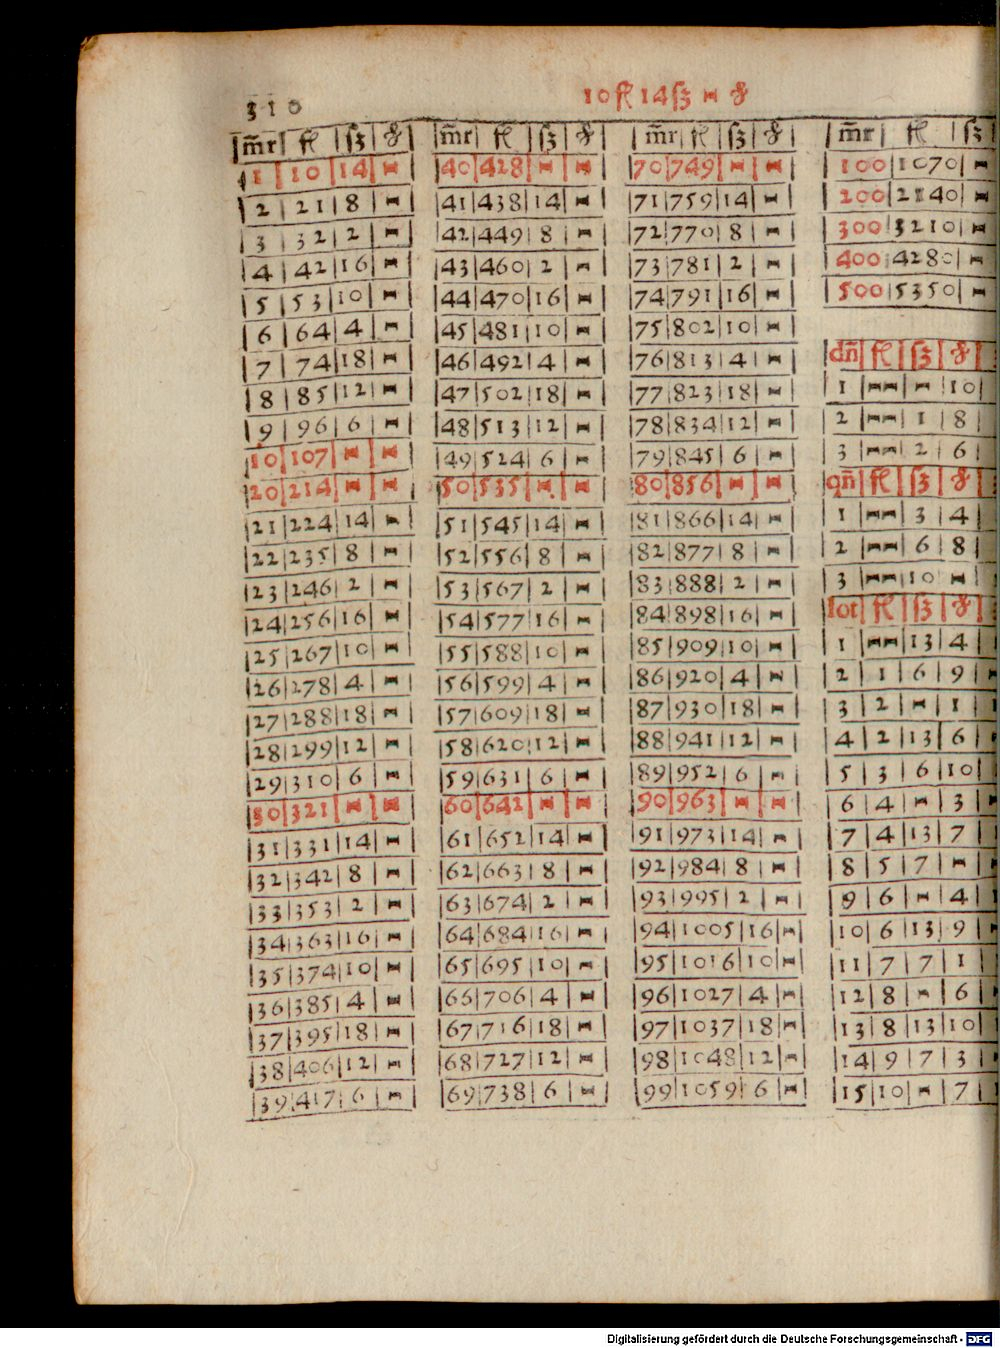 310
10 fl 14 ß – ₰
m̄r fl ß ₰
1 10 14 –
2 21 8 –
3 32 2 –
4 42 16 –
5 53 10 –
6 64 4 –
7 74 18 –
8 85 12 –
9 96 6 –
10 107 – –
20 214 – –
21 224 14 –
22 235 8 –
23 246 2 –
24 256 16 –
25 267 10 –
26 278 4 –
27 288 18 –
28 299 12 –
29 310 6 –
30 321 – –
31 331 14 –
32 342 8 –
33 353 2 –
34 363 16 –
35 374 10 –
36 385 4 –
37 395 18 –
38 406 12 –
39 417 6 –
m̄r fl ß ₰
40 428 – –
41 438 14 –
42 449 8 –
43 460 2 –
44 470 16 –
45 481 10 –
46 492 4 –
47 502 18 –
48 513 12 –
49 524 6 –
50 535 – –
51 545 14 –
52 556 8 –
53 567 2 –
54 577 16 –
55 588 10 –
56 599 4 –
57 609 18 –
58 620 12 –
59 631 6 –
60 642 – –
61 652 14 –
62 663 8 –
63 674 2 –
64 684 16 –
65 695 10 –
66 706 4 –
67 716 18 –
68 727 12 –
69 738 6 –
m̄r fl ß ₰
70 749 – –
71 759 14 –
72 770 8 –
73 781 2 –
74 791 16 –
75 802 10 –
76 813 4 –
77 823 18 –
78 834 12 –
79 845 6 –
80 856 – –
81 866 14 –
82 877 8 –
83 888 2 –
84 898 16 –
85 909 10 –
86 920 4 –
87 930 18 –
88 941 12 –
89 952 6 –
90 963 – –
91 973 14 –
92 984 8 –
93 995 2 –
94 1005 16 –
95 1016 10 –
96 1027 4 –
97 1037 18 –
98 1048 12 –
99 1059 6 –
m̄r fl ß
100 1070 –
200 2140 –
300 3210 –
400 4280 –
500 5350 –
dn̄ fl ß ₰
1 – – 10
2 – 1 8
3 – 2 6
qn̄ fl ß ₰
1 – 3 4
2 – 6 8
3 – 10 –
lot fl ß ₰
1 – 13 4
2 1 6 9
3 2 – 1
4 2 13 6
5 3 6 10
6 4 – 3
7 4 13 7
8 5 7 –
9 6 – 4
10 6 13 9
11 7 7 1
12 8 – 6
13 8 13 10
14 9 7 3
15 10 – 7
Digitalisierung gefördert durch die Deutsche Forschungsgemeinschaft - DFG